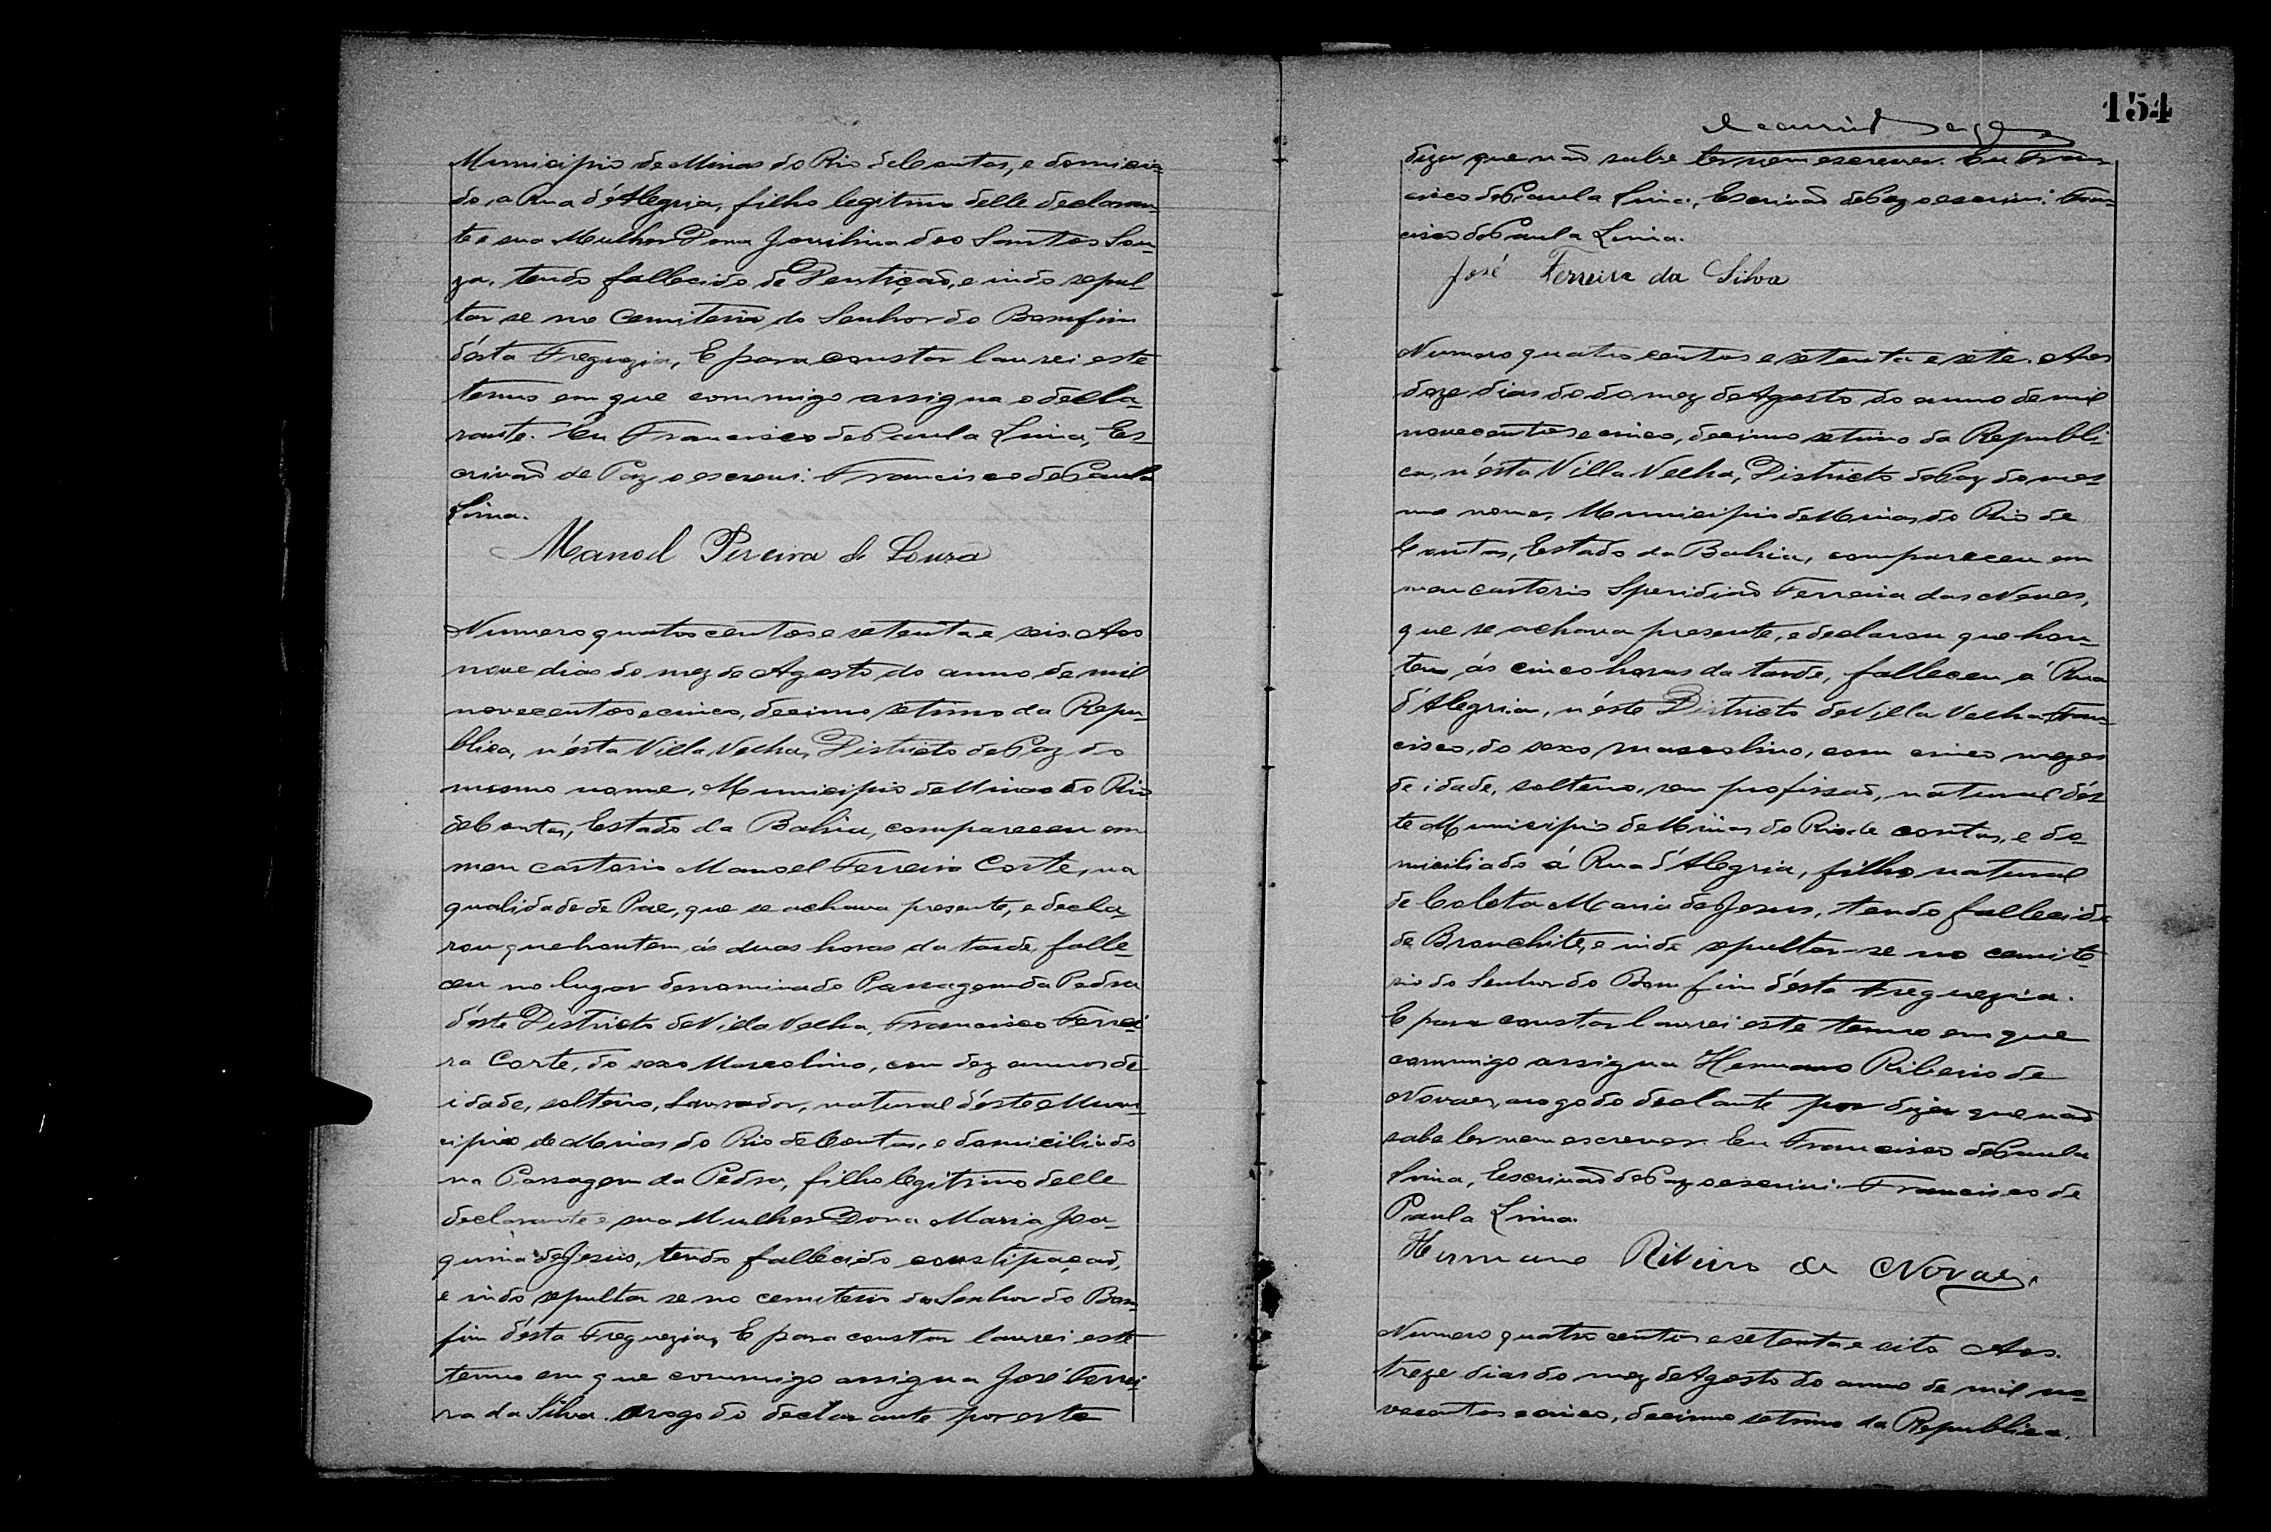 Municipio de Minas do Rio de Contas, e domicia-
do, a Rua d'Alegria, filho legitimo delle declaran-
te e sua Mulher Dona Jovilina dos Santos Sou-
za, tendo fallecido de Dentiçaõ, e indo sepul-
tar se no Cemiterio do Senhor do Bomfim
d'ésta Freguezia, E para constar lavrei este
termo em que commigo assigna o decla-
rante. Eu Francisco de Paula Lima, Es-
crivaõ de Paz o escrevi. Francisco de Paula
Lima.
Manoel Pereira de Souza
Numero quatro centos e setenta e seis. Aos
nove dias do mez de Agosto do anno de mil
novecentos e cinco, decimo setimo da Repu-
blica, n'ésta Villa Velha, Districto de Paz do
mesmo nome, Municipio de Minas do Rio
de Contas, Estado da Bahia, compareceu em
meu cartorio Manoel Ferreira Corte, na
qualidade de Pae, que se achava presente, e decla-
rou que hontem, ás duas horas da tarde, falle-
ceu no lugar denominado Passagem da Pedra
d'éste Districto de Villa Velha, Francisco Ferrei
ra Corte, do sexo Mascolino, com dez annos de
idade, solteiro, Lavrador, natural d'éste Muni-
cipio de Minas do Rio de Contas, e domiciliado
na Passagem da Pedra, filho legitimo delle
declarante e sua Mulher Dona Maria Joa-
quina de Jesus, tendo fallecido constipaçaõ,
e indo sepultar se no cemiterio do Senhor do Bom
fim d'ésta Freguezia, E para constar lavrei este
termo em que commigo assigna José Ferrei
ra da Silva. arogo do declarante por este
154
dizer que naõ sabe ler nem escrever. Eu Fran-
cisco de Paula Lima, Escrivaõ de Paz o escrevi. Fran-
cisco de Paula Lima.
José Ferreira da Silva
Numero quatro centos e setenta e sete. Aos
doze dias do do mez de Agosto do anno de mil
novecentos e cinco, decimo setimo da Republi-
ca, n'ésta Villa Velha, Districto de Paz do mes-
mo nome, Municipio de Minas do Rio de
Contas, Estado da Bahia, compareceu em
meu cartorio Speridiaõ Ferreira das Neves,
que se achava presente, e declarou que hon-
tem, ás cinco horas da tarde, falleceu á Rua
d'Alegria, n'éste Districto de Villa Velha Fran-
cisco, do sexo mascolino, com cinco mezes
de idade, solteiro, sem profissaõ, natural d'és
te Municipio de Minas do Rio de contas, e do-
miciliado á Rua d'Alegria, filho natural
de Coleta Maria de Jesus, tendo fallecido
de Bronchite, e indo sepultar-se no cemite-
rio do Senhor do Bom fim d'ésta Freguezia.
E para constar lavrei este termo em que
commigo assigna Hermano Ribeiro de
Novaes, arogo do declante por dizer que naõ
sabe ler nem escrever. Eu Francisco de Paula
Lima, Escrivaõ de Paz o escrevi. Francisco de
Paula Lima.
Hermano Ribeiro de Novaes.
Numero quatro centos e setenta e oito Aos
treze dias do mez de Agosto do anno de mil no-
vecentos e cinco, decimo setimo da Republica.